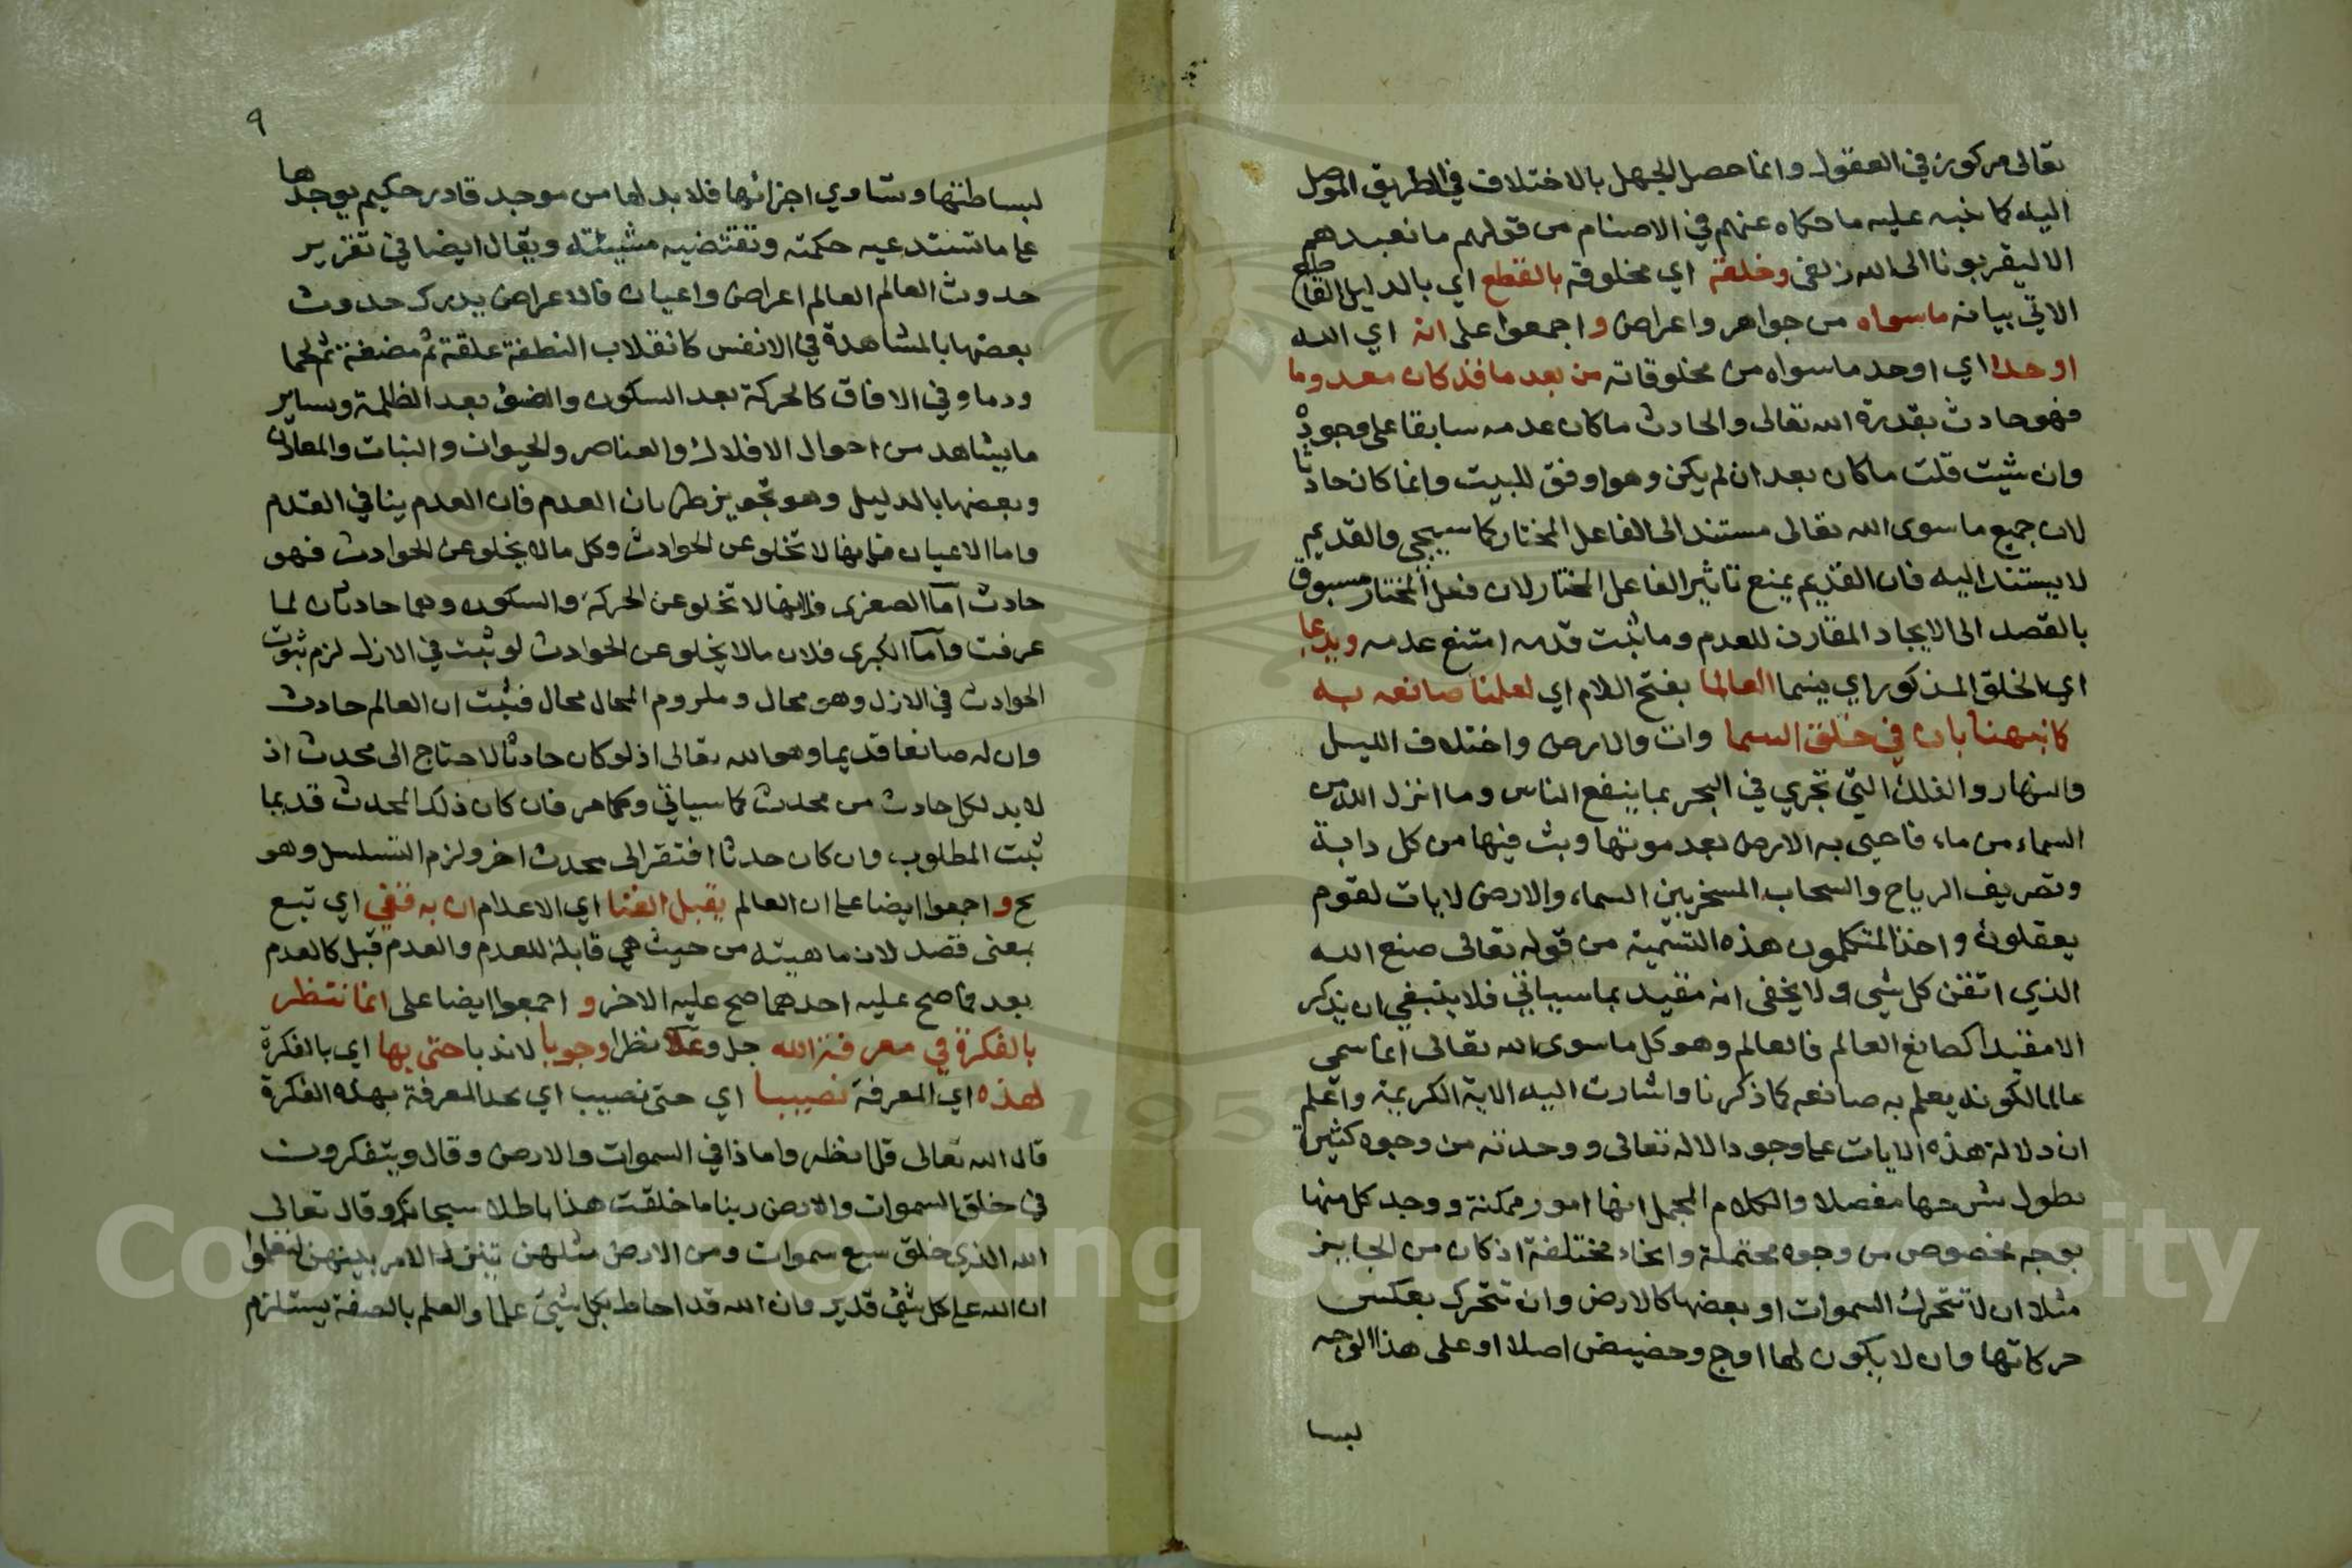 تعالى مركوز في العقول وانما حصل الجهل بالاختلاف في الطريق الموصل
اليه كما نبه عليه ما حكاه عنهم في الاصنام من قولهم ما نعبدهم
الا ليقربونا الى الله زلفى وخلقه اي مخلوقه بالقطع اي بالدليل القاطع
الاتي بيانه ماسواه من جواهر واعراض و اجمعوا على انه اي الله
اوجدا اي اوجد ماسواه من مخلوقاته من بعد ما قد كان معدوما
فهو حادث بقدرة الله تعالى والحادث ما كان عدمه سابقا على وجوده
وان شيت قلت ما كان بعد ان لم يكن وهو اوفق للبيت وانما كان حادثا
لان جميع ما سوى الله تعالى مستند الى الفاعل المختار كما سيجي والقديم
لا يستند اليه فان القديم يمنع تاثير الفاعل المختار لان فعل المختار مسبوق
بالقصد الى الايجاد المقارن للعدم وما ثبت قدمه امتنع عدمه ويدعا
اي الخلق المذكور اي ينسما العالما بفتح اللام اي لعلمنا صانعه به
كما نبهنا بان في خلق السما وات والارض واختلاف الليل
والنهار والفلك التي تجري في البحر بما ينفع الناس وما انزل الله من
السماء من ماء فاحيى به الارض بعد موتها وبث فيها من كل دابة
وتصريف الرياح والسحاب المسخر بين السماء والارض لايات لقوم
يعقلون واخذ المتكلمون هذه التسمية من قوله تعالى صنع الله
الذي اتقن كل شي ولا يخفى انه مقيد بما سياتي فلا ينبغي ان يذكر
الا مقيدا كصانع العالم فالعالم وهو كل ما سوى الله تعالى انما سمي
عالما لكونه يعلم به صانعه كما ذكرنا واشارت اليه الاية الكريمة واعلم
ان دلالة هذه الايات على وجود الاله تعالى ووحدته من وجوه كثيرة
يطول شرحها مفصلا والكلام المجمل انها امور ممكنة ووجد كل منها
بوجه مخصوص من وجوه محتملة وانحاء مختلفة اذ كان من الجايز
مثلا ان لا تتحرك السموات او بعضها كالارض وان تتحرك بعكس
حركاتها وان لا يكون لها اوج وحضيض اصلا او على هذا الوجه
لبسا
٩
لبساطتها وتساوي اجزائها فلا بد لها من موجد قادر حكيم يوجدها
على ما تستدعيه حكمته وتقتضيه مشيئته ويقال ايضا في تقرير
حدوث العالم العالم اعراض واعيان فالاعراض يدرك حدوث
بعضها بالمشاهدة في الانفس كانقلاب النطفة علقة ثم مضغة ثم لحما
ودما وفي الافاق كالحركة بعد السكون والضوء بعد الظلمة وساير
ما يشاهد من احوال الافلاك والعناصر والحيوان والنبات والمعادن
وبعضها بالدليل وهو تجويز طريان العدم فان العدم ينافي القدم
واما الاعيان فانها لا تخلو عن الحوادث وكل ما لا يخلو عن الحوادث فهو
حادث اما الصغرى فلانها لا تخلو عن الحركة والسكون وهما حادثان لما
عرفت واما الكبرى فلان ما لا يخلو عن الحوادث لو ثبت في الازل لزم ثبوت
الحوادث في الازل وهو محال وملزوم المحال محال فثبت ان العالم حادث
وان له صانعا قديما وهو الله تعالى اذ لو كان حادثا لاحتاج الى محدث اذ
لا بد لكل حادث من محدث كما سياتي وكما مر فان كان ذلك المحدث قديما
ثبت المطلوب وان كان حدثا افتقر الى محدث اخر ولزم التسلسل وهو
مح و اجمعوا ايضا على ان العالم يقبل الفنا اي الاعدام ان به قفي اي تبع
بمعنى قصد لان ماهيته من حيث هي قابلة للعدم والعدم قبل كالعدم
بعد فما صح عليه احدهما صح عليه الاخر و اجمعوا ايضا على انما ننتظر
بالفكرة في معرفة الله جل وعلا نظرا وجوبا لا ندبا حتى بها اي بالفكرة
لهذه اي المعرفة نصيبا اي حتى نصيب اي نجد المعرفة بهذه الفكرة
قال الله تعالى قل انظروا ماذا في السموات والارض وقال ويتفكرون
في خلق السموات والارض ربنا ما خلقت هذا باطلا سبحانك وقال تعالى
الله الذي خلق سبع سموات ومن الارض مثلهن يتنزل الامر بينهن لتعلموا
ان الله على كل شئ قدير وان الله قد احاط بكل شئ علما والعلم بالصفة يستلزم
Copyright © King Saud University
1957